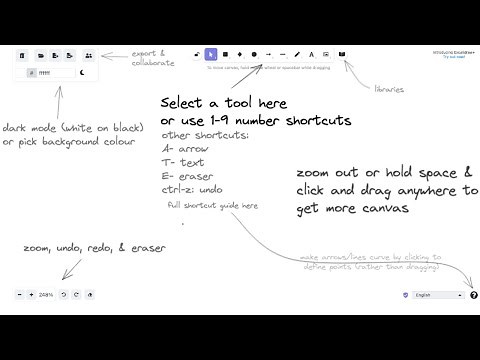 export &
collaborate
Introducing Excalidraw+
Try out now!
# ffffff
To move canvas, hold mouse wheel or spacebar while dragging
libraries
Select a tool here
or use 1-9 number shortcuts
dark mode (white on black)
or pick background colour
other shortcuts:
A- arrow
T- text
E- eraser
ctrl-z: undo
full shortcut guide here
zoom out or hold space &
click and drag anywhere to
get more canvas
zoom, undo, redo, & eraser
make arrows/lines curve by clicking to
define points (rather than dragging)
248%
English